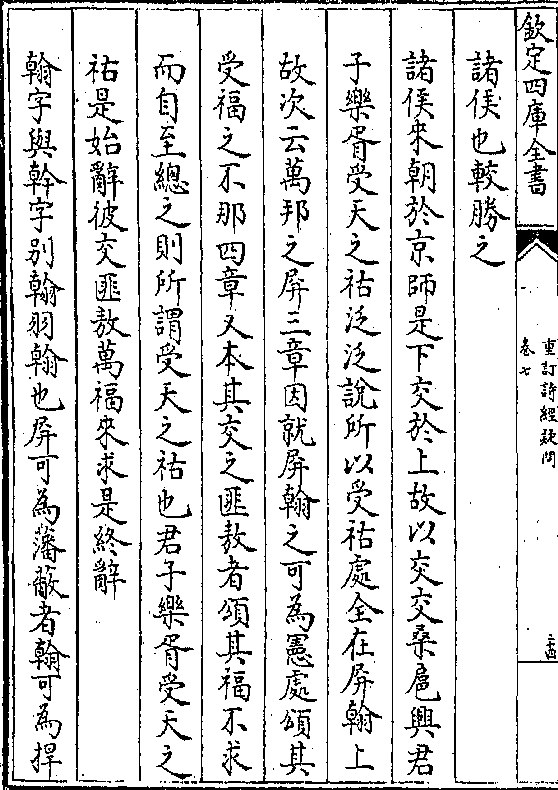 欽定四庫全書
重訂詩經疑問
卷七
二十四
諸侯也較勝之
諸侯來朝於京師是下交於上故以交交桑扈興君
子樂胥受天之祜泛泛說所以受祜處全在屏翰上
故次云萬邦之屏三章因就屏翰之可為憲處頌其
受福之不那四章又本其交之匪敖者頌其福不求
而自至總之則所謂受天之祜也君子樂胥受天之
祜是始辭彼交匪敖萬福來求是終辭
翰字與幹字别翰羽翰也屏可為藩蔽者翰可為捍